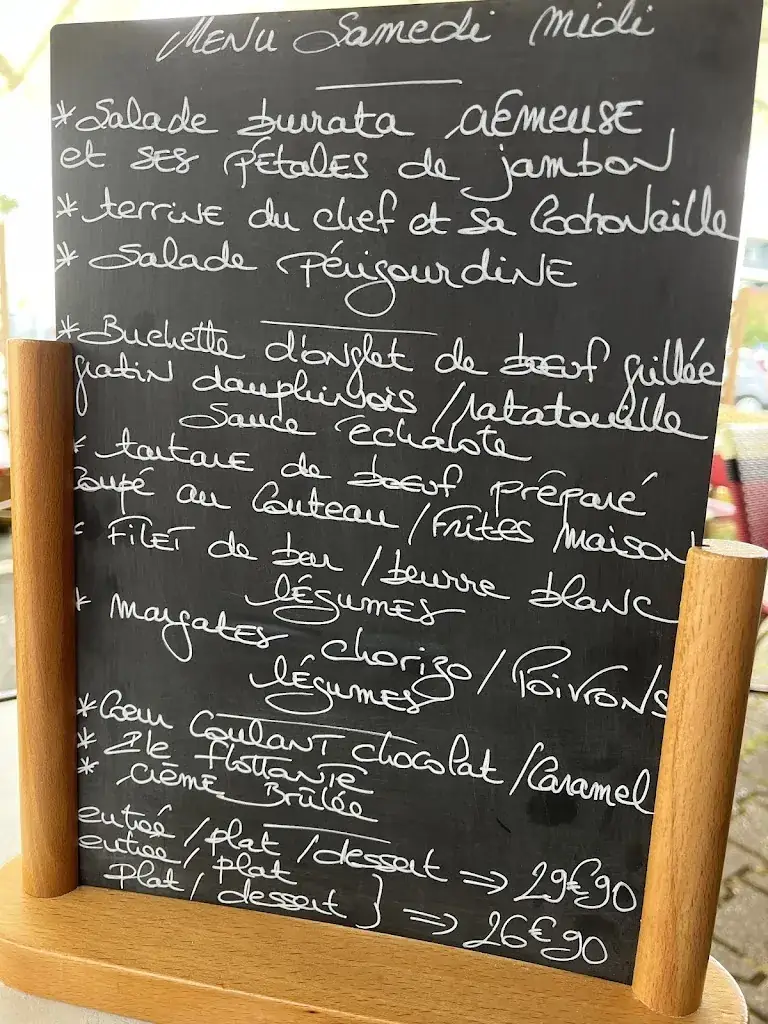 Menu Samedi midi
* Salade burata crémeuse
et ses pétales de jambon
* terrine du chef et sa cochonaille
* Salade périgourdine
* Buchette d'onglet de boeuf grillée
gratin dauphinois / ratatouille
Sauce échalote
* tartare de boeuf préparé
coupé au couteau / Frites maison
* Filet de bar / beurre blanc
légumes
* margates chorizo / Poivrons
légumes
* Coeur coulant chocolat / Caramel
* Ile flottante
* crème Brûlée
entrée / plat / dessert => 29€90
entrée / plat
plat / dessert } => 26€90